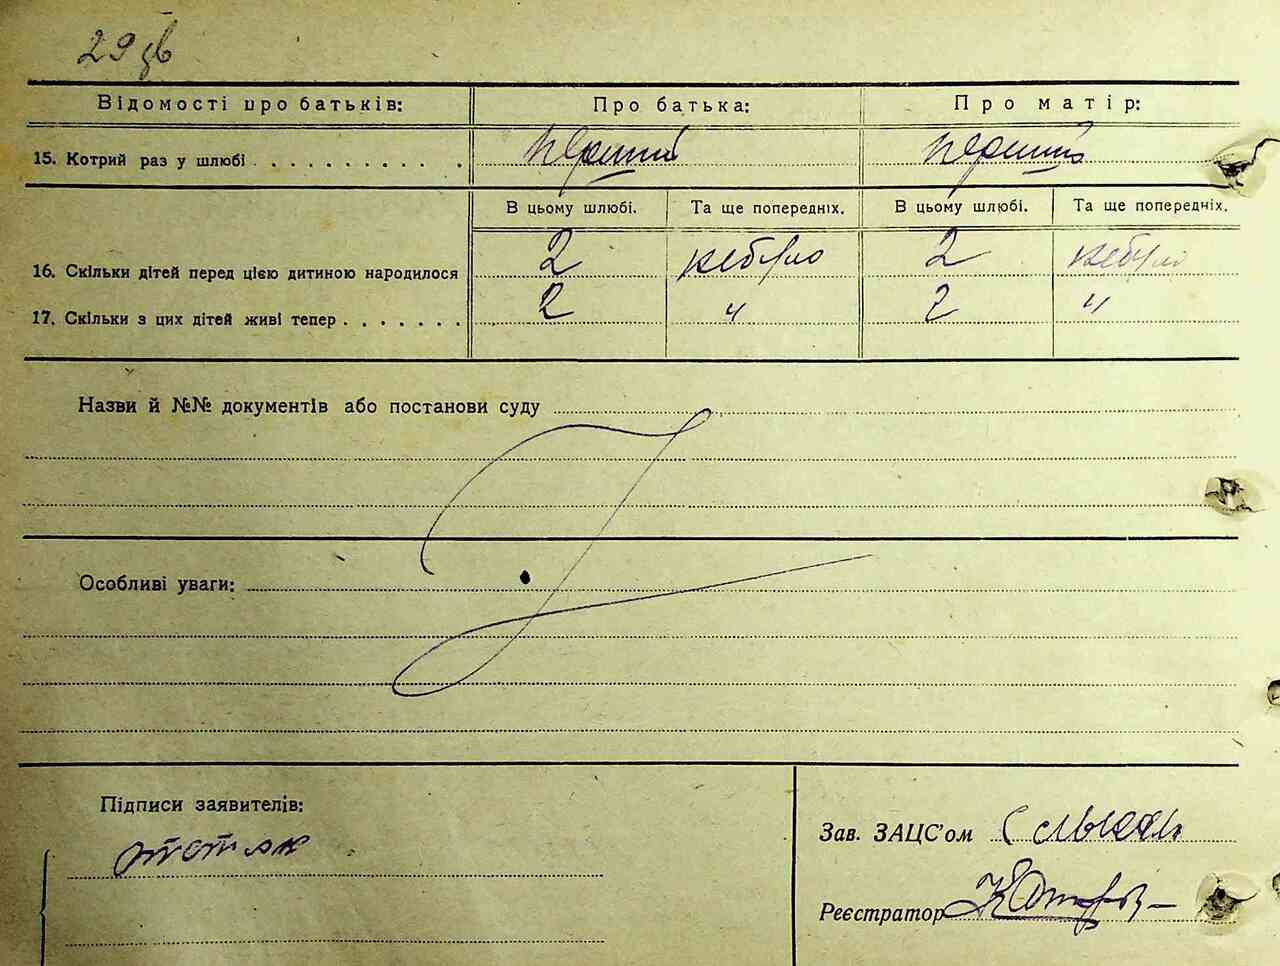 29 зв
Відомості про батьків: Про батька: Про матір:
15. Котрий раз у шлюбі . . . . . . . . . . перший перший
В цьому шлюбі. Та ще попередніх. В цьому шлюбі. Та ще попередніх.
16. Скільки дітей перед цією дитиною народилося 2 небуло 2 небуло
17. Скільки з цих дітей живі тепер . . . . . . . 2 " 2 "
Назви й №№ документів або постанови суду
Особливі уваги:
Підписи заявителів:
Зав. ЗАЦС'ом
Реєстратор